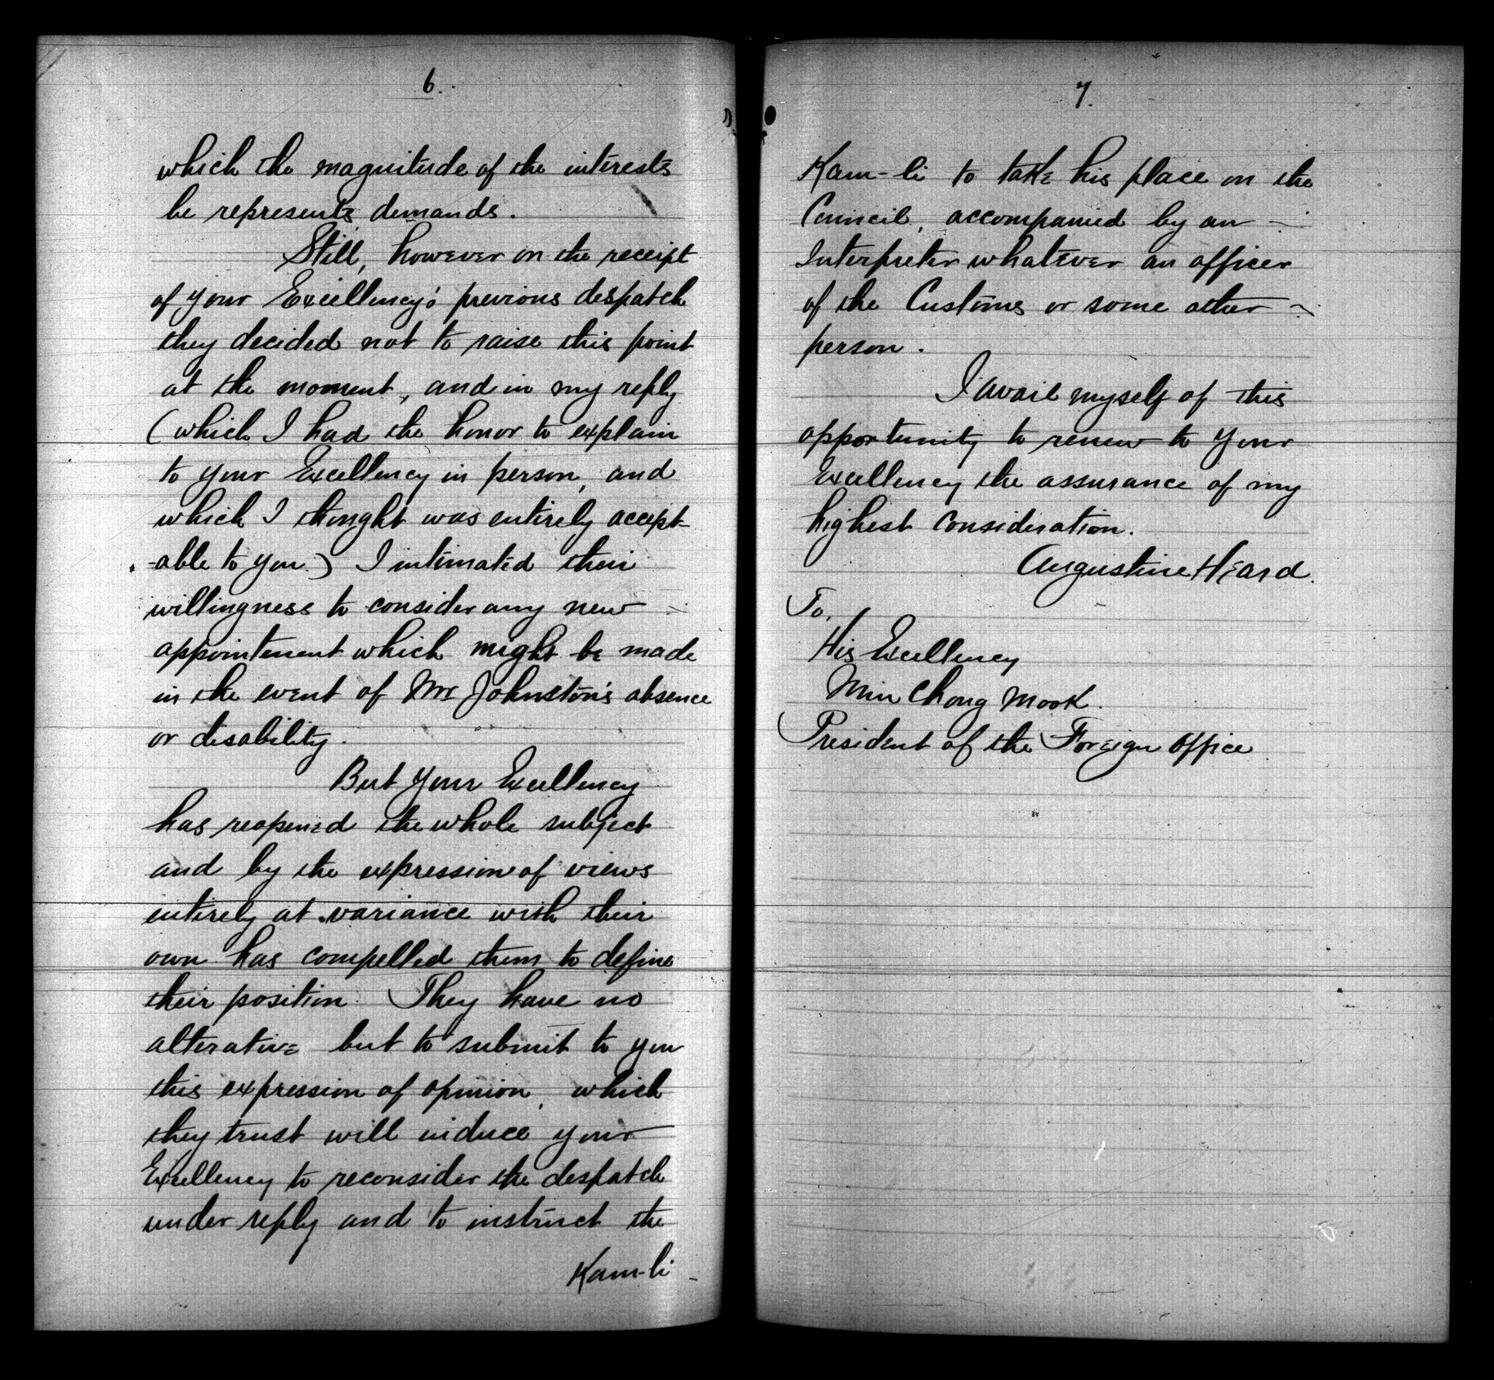 6.
which the magnitude of the interests
he represents demands.
Still, however on the receipt
of your Excellency's previous despatch
they decided not to raise this point
at the moment, and in my reply
(which I had the honor to explain
to your Excellency in person, and
which I thought was entirely accept-
-able to you) I intimated their
willingness to consider any new
appointement which might be made
in the event of Mr Johnston's absence
or disability.
But your Excellency
has reopened the whole subject
and by the expression of views
entirely at variance with their
own has compelled them to define
their position. They have no
alterative but to submit to you
this expression of opinion, which
they trust will induce your
Excellency to reconsider the despatch
under reply and to instruct the
Kam-li
7.
Kam-li to take his place on the
Council, accompanied by an
Interpreter whatever an officer
of the Customs or some other
person.
I avail myself of this
opportunity to renew to your
Excellency the assurance of my
highest consideration.
Augustine Heard.
To,
His Excellency
Min Chong Mook.
President of the Foreign Office